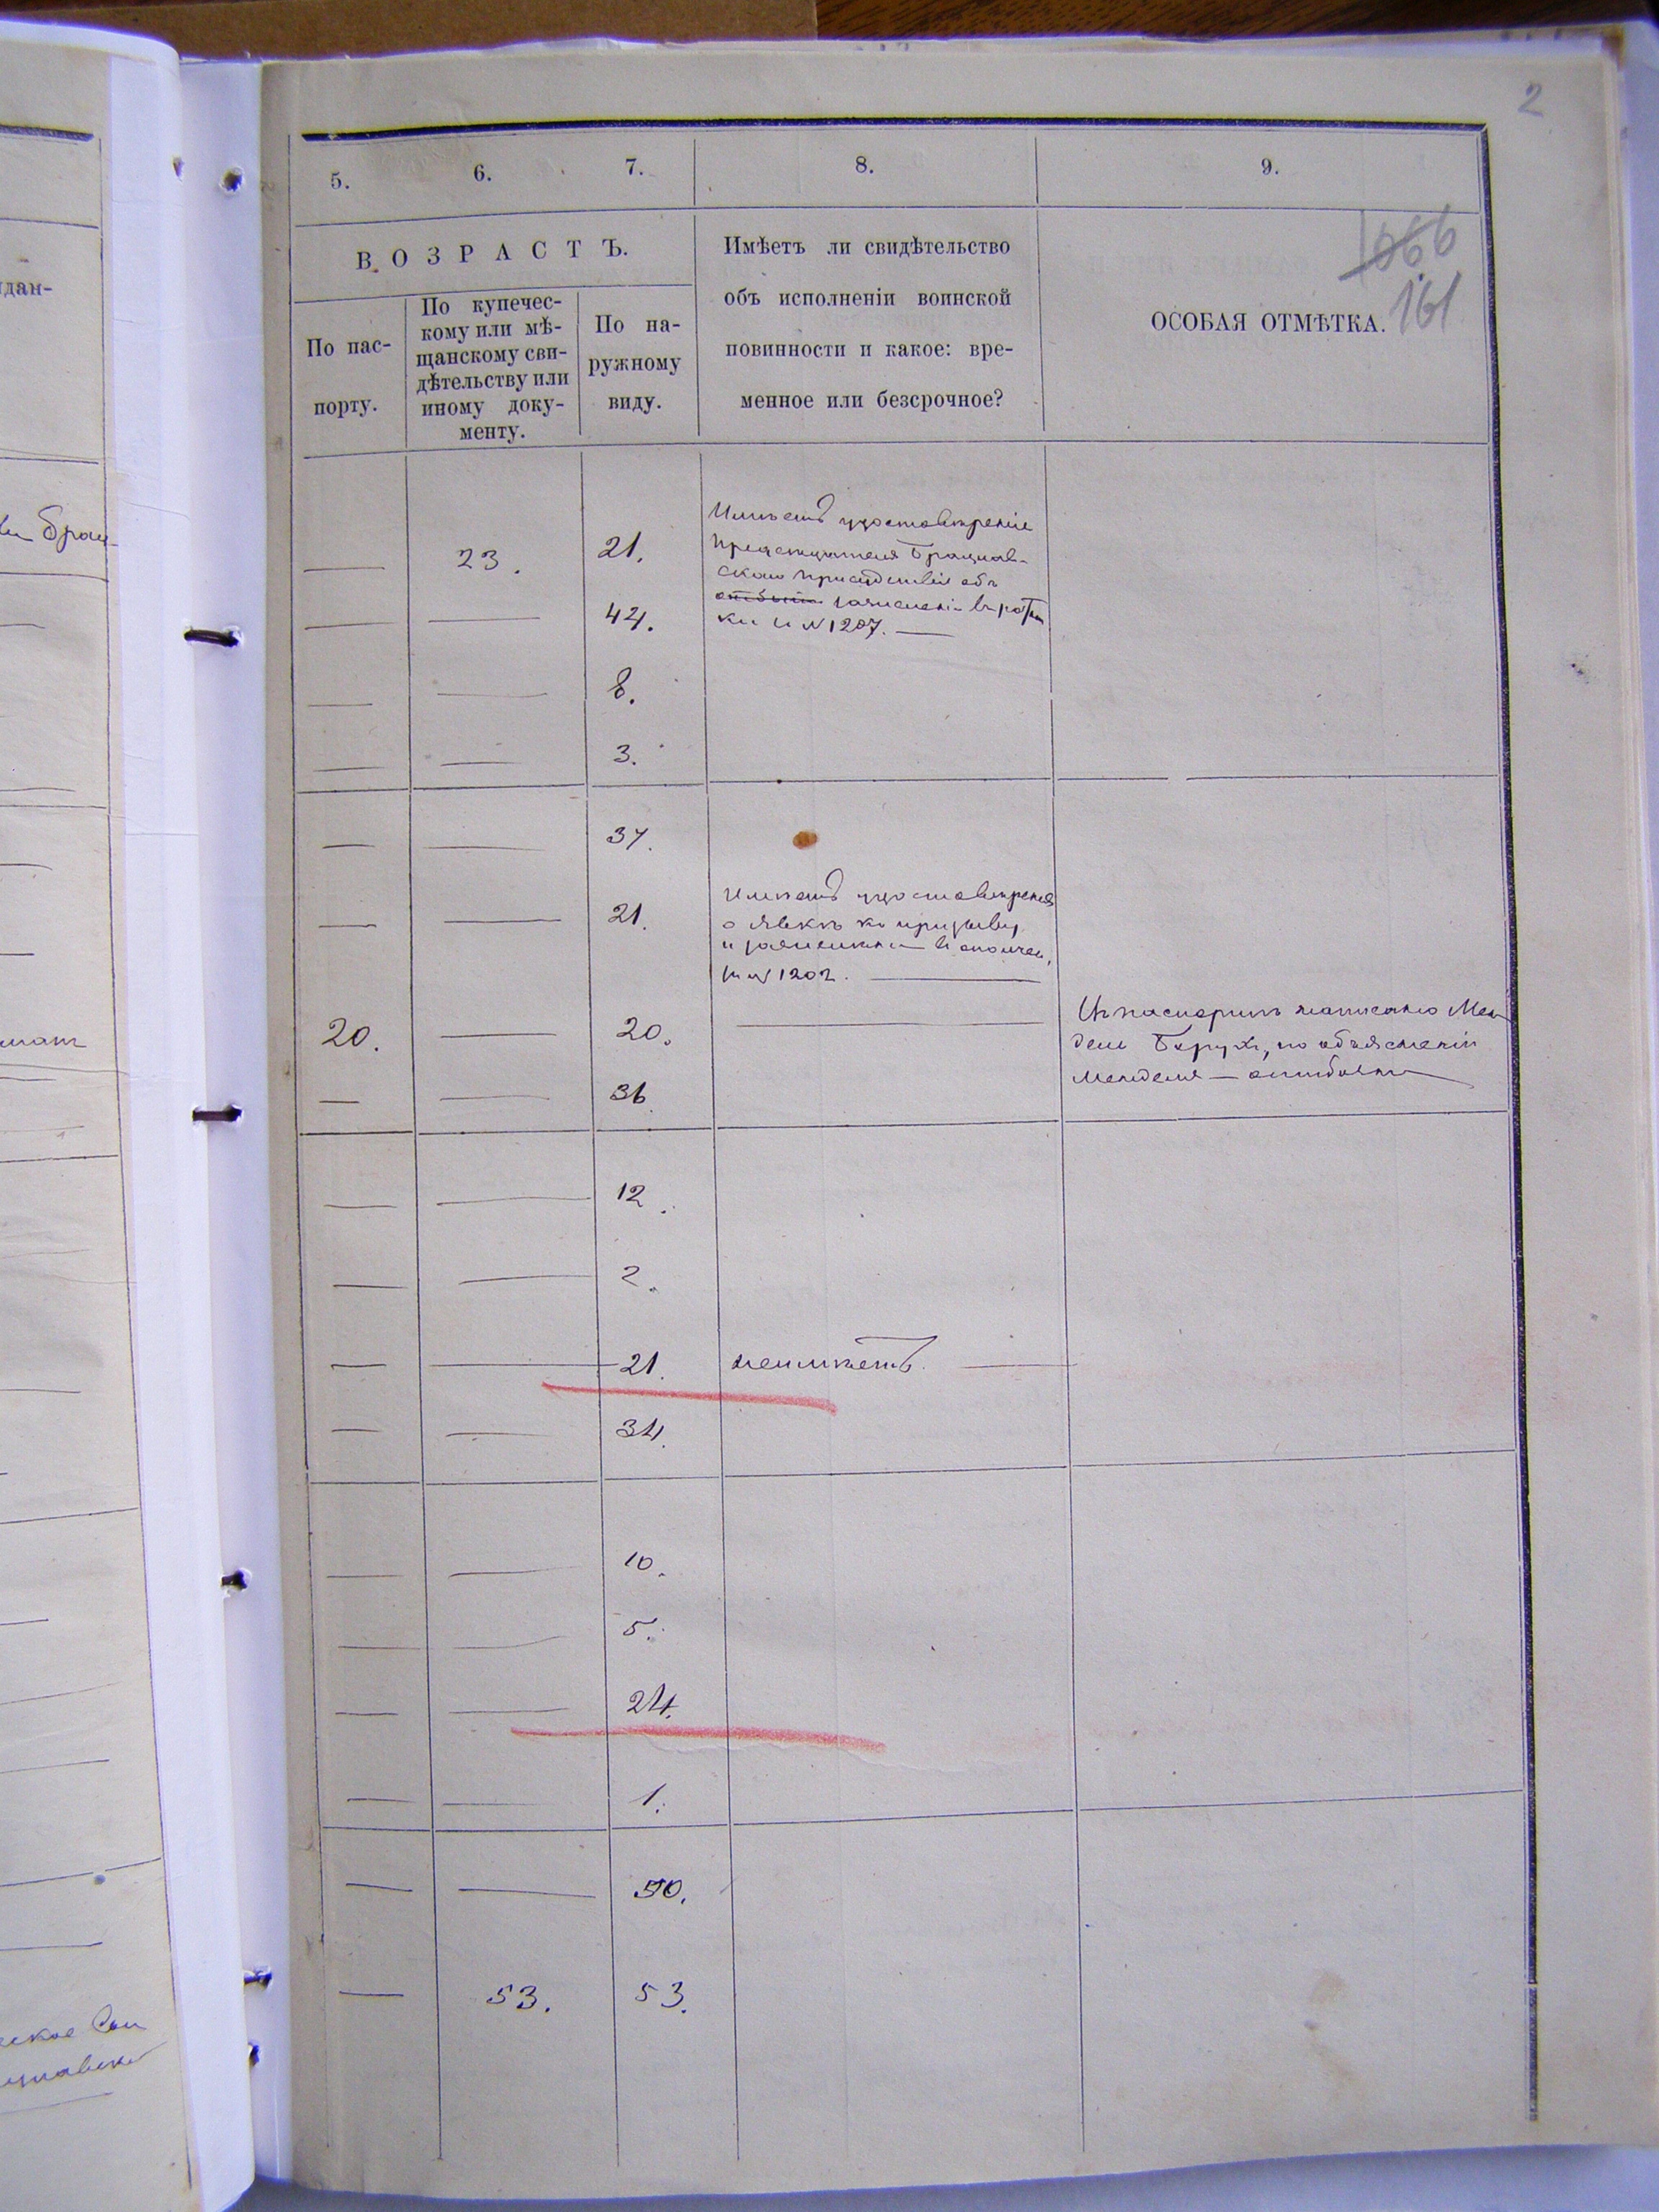 2
5. 6. 7. 8. 9.
ВОЗРАСТЪ.
По пас-
порту.
По купечес-
кому или мѣ-
щанскому сви-
дѣтельству или
иному доку-
менту.
По на-
ружному
виду.
Имѣетъ ли свидѣтельство
объ исполненіи воинской
повинности и какое: вре-
менное или безсрочное?
ОСОБАЯ ОТМѢТКА.
1066
161
дан-
— 23. 21.
Имѣетъ удостовѣреніе
Брацлав-
скаго присутствія объ
зачисленіи въ ратни
ки № 1207. —
— — 44.
— — 8.
— — 3.
— — 37.
— — 21.
Имѣетъ удостовѣреніе
о явкѣ къ призыву
и зачисленіи
№ 1202. —
20. — 20. —
Въ паспортѣ написано Мен
дель Берухъ, по объясненію
Менделя — ошибочно
— — 36
— — 12.
— — 2.
— — 21. неимѣетъ. —
— — 34.
— — 10.
— — 5.
— — 24.
— — 1.
— — 50.
— 53. 53.